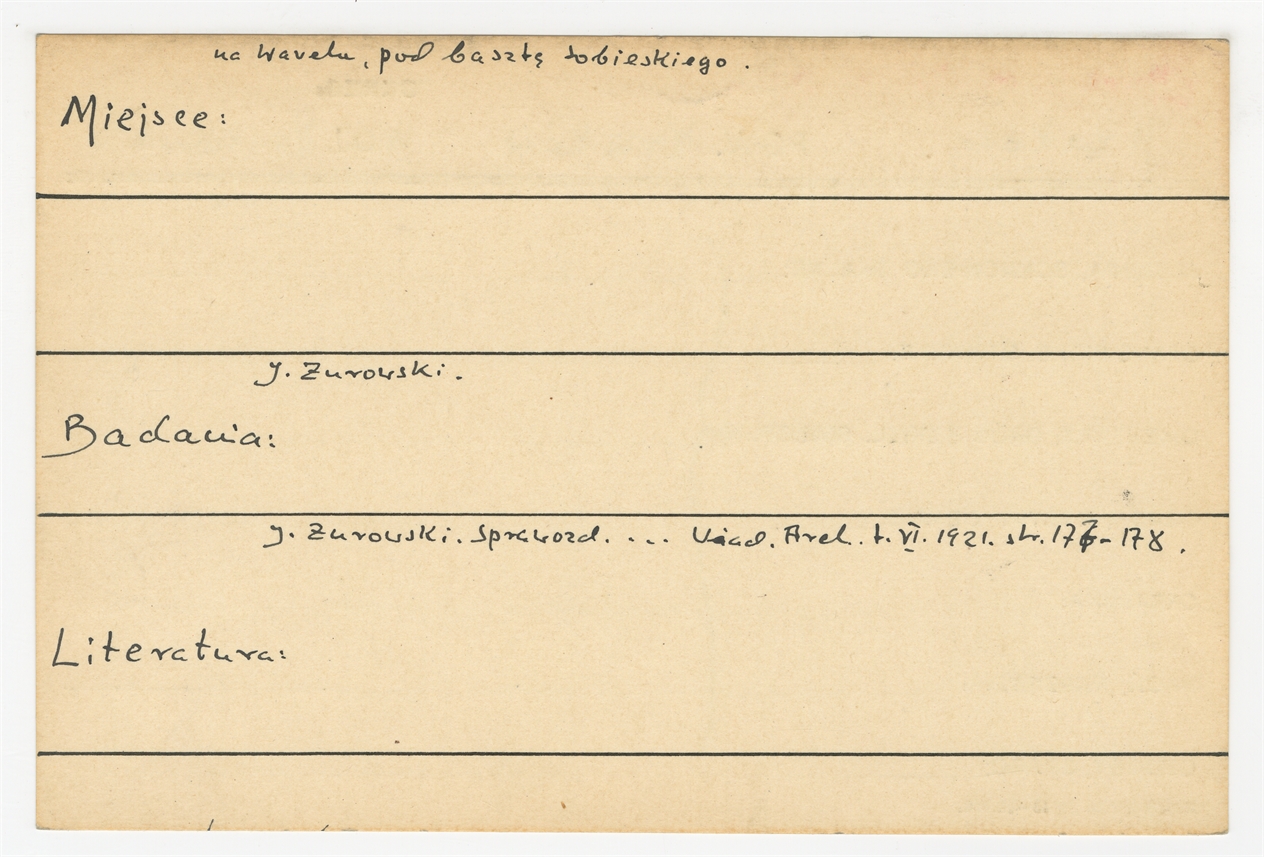 na Wawelu, pod basztą Sobieskiego.
Miejsce:
J. Żurowski.
Badania:
J. Żurowski. Sprawozd. ... Wiad. Arch. t. VI. 1921. str. 177-178.
Literatura: